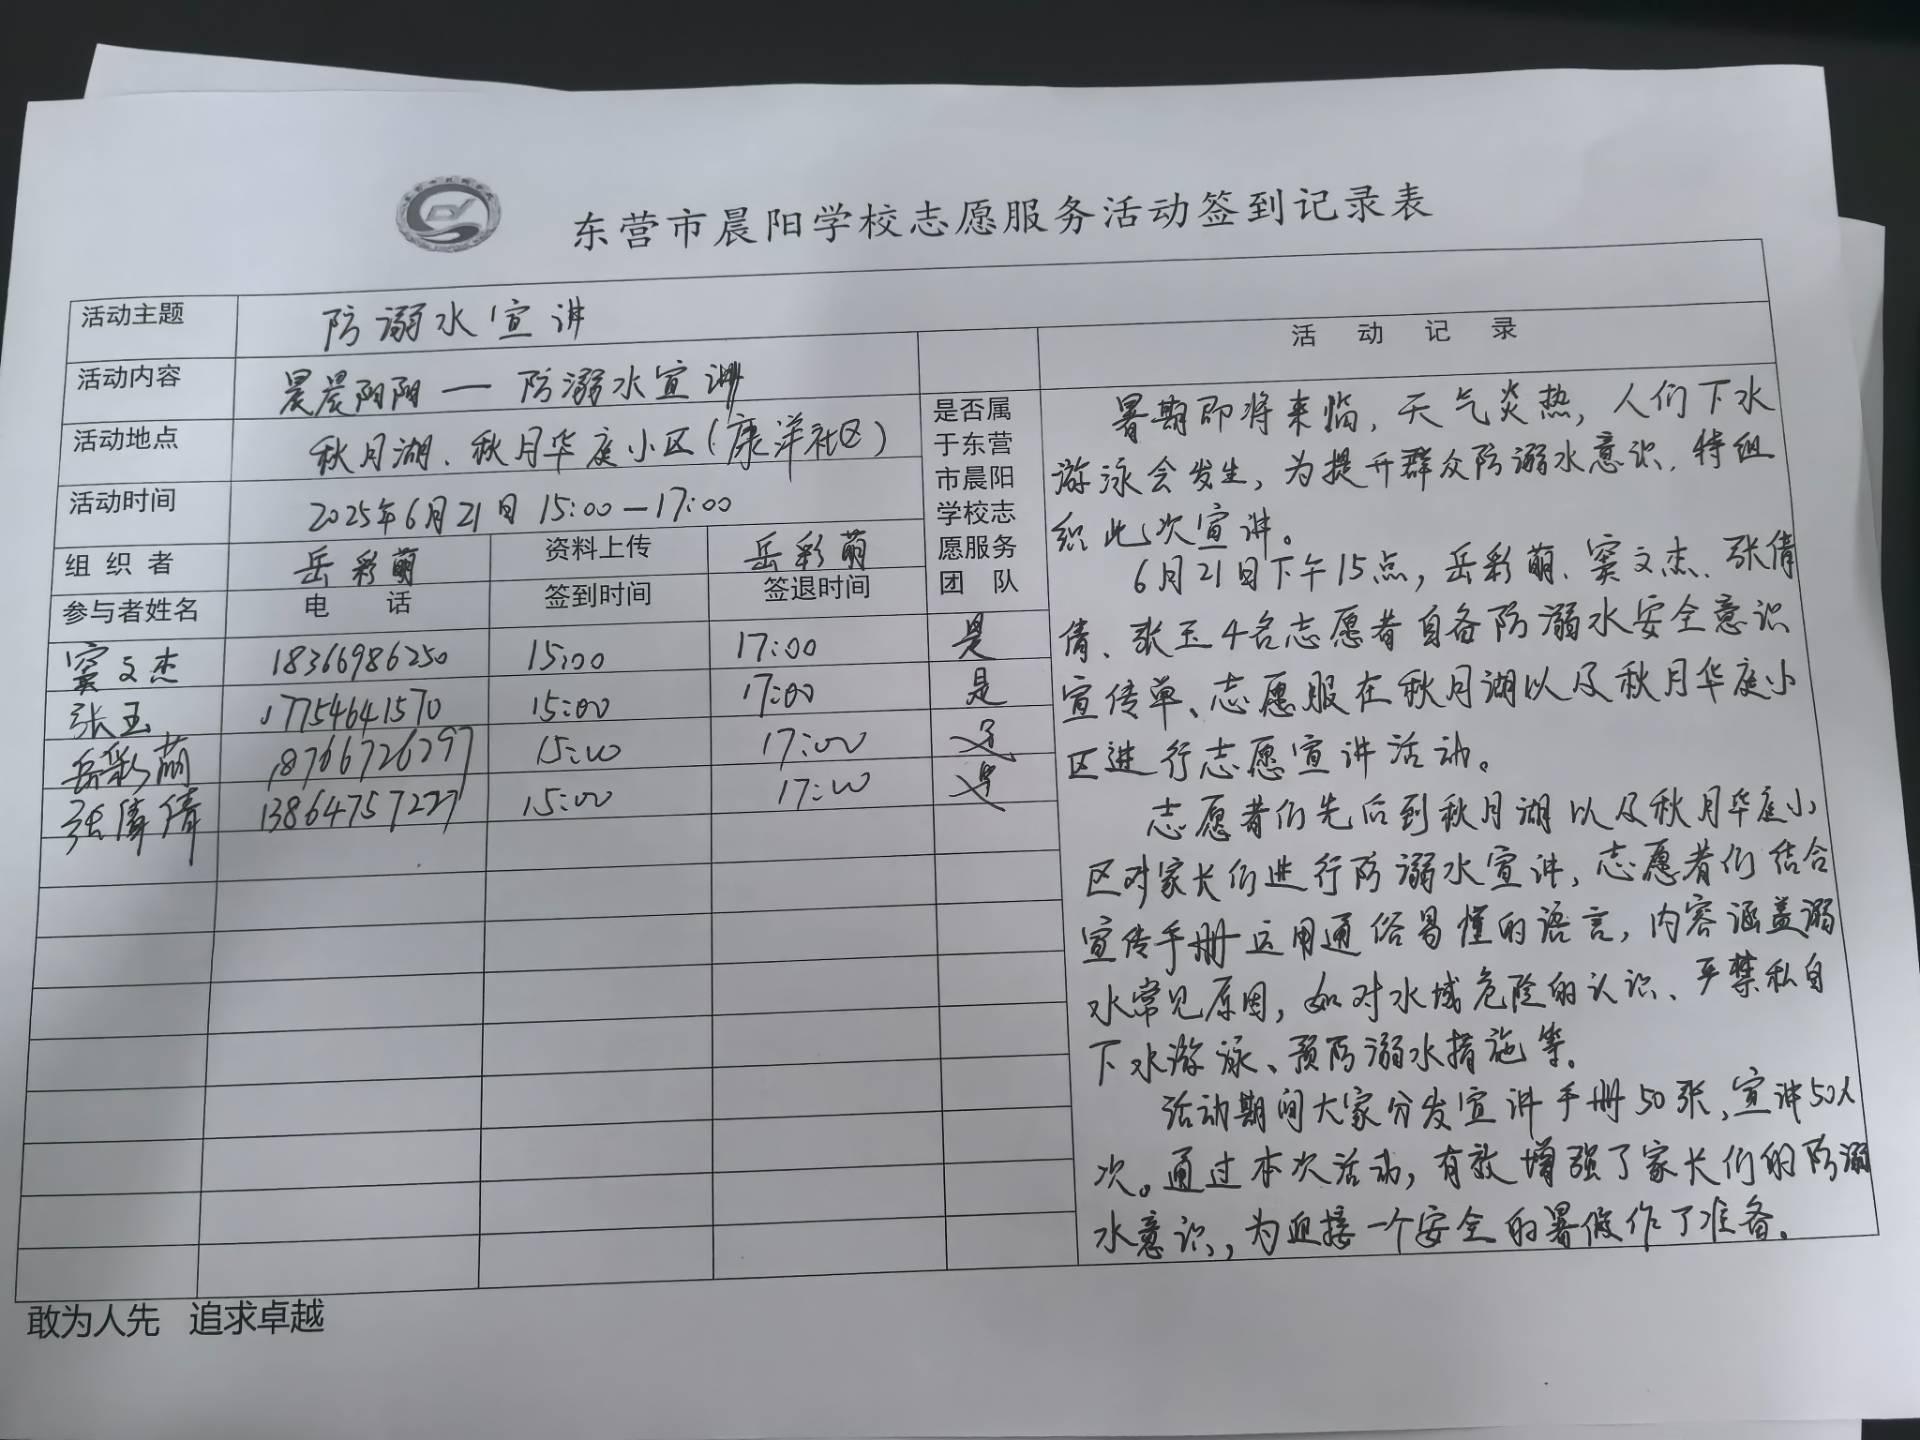 东营市晨阳学校志愿服务活动签到记录表
活动主题 防溺水宣讲
活动内容 晨晨阳阳—防溺水宣讲
活动地点 秋月湖、秋月华庭小区(康洋社区)
活动时间 2025年6月21日 15:00—17:00
组织者 岳彩萌 资料上传 岳彩萌
参与者姓名 电话 签到时间 签退时间
是否属
于东营
市晨阳
学校志
愿服务
团队
窦文杰 18366986250 15:00 17:00 是
张玉 17754641570 15:00 17:00 是
岳彩萌 18766726297 15:00 17:00 是
张倩倩 13864757227 15:00 17:00 是
活动记录
暑期即将来临,天气炎热,人们下水
游泳会发生,为提升群众防溺水意识,特组
织此次宣讲。
6月21日下午15点,岳彩萌、窦文杰、张倩
倩、张玉4名志愿者自备防溺水安全意识
宣传单、志愿服在秋月湖以及秋月华庭小
区进行志愿宣讲活动。
志愿者们先后到秋月湖以及秋月华庭小
区对家长们进行防溺水宣讲,志愿者们结合
宣传手册运用通俗易懂的语言,内容涵盖溺
水常见原因,如对水域危险的认识、严禁私自
下水游泳、预防溺水措施等。
活动期间大家分发宣讲手册50张,宣讲50人
次。通过本次活动,有效增强了家长们的防溺
水意识,为迎接一个安全的暑假作了准备。
敢为人先 追求卓越